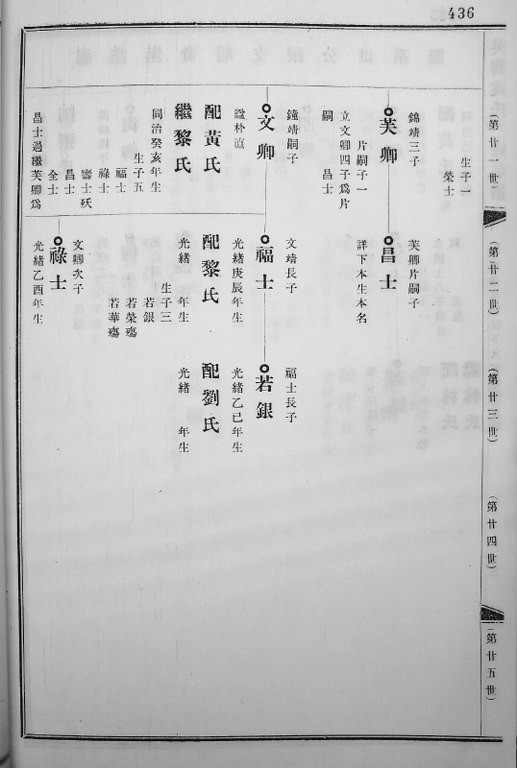 436
(第廿一世)
(第廿二世)
(第廿三世)
(第廿四世)
(第廿五世)
生子一
榮士
錦靖三子
芙卿
片嗣子一
立文卿四子為片
嗣
昌士
鐘靖嗣子
文卿
諡朴直
配黃氏
繼黎氏
同治癸亥年生
生子五
福士
祿士
壽士殀
昌士
全士
昌士過繼芙卿為
芙卿片嗣子
昌士
詳下本生本名
文靖長子
福士
光緒庚辰年生
配黎氏
光緒 年生
生子三
若銀
若榮殤
若華殤
文卿次子
祿士
光緒乙酉年生
福士長子
若銀
光緒乙巳年生
配劉氏
光緒 年生